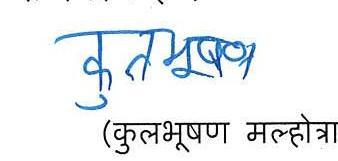 कुलभूषण
(कुलभूषण मल्होत्रा